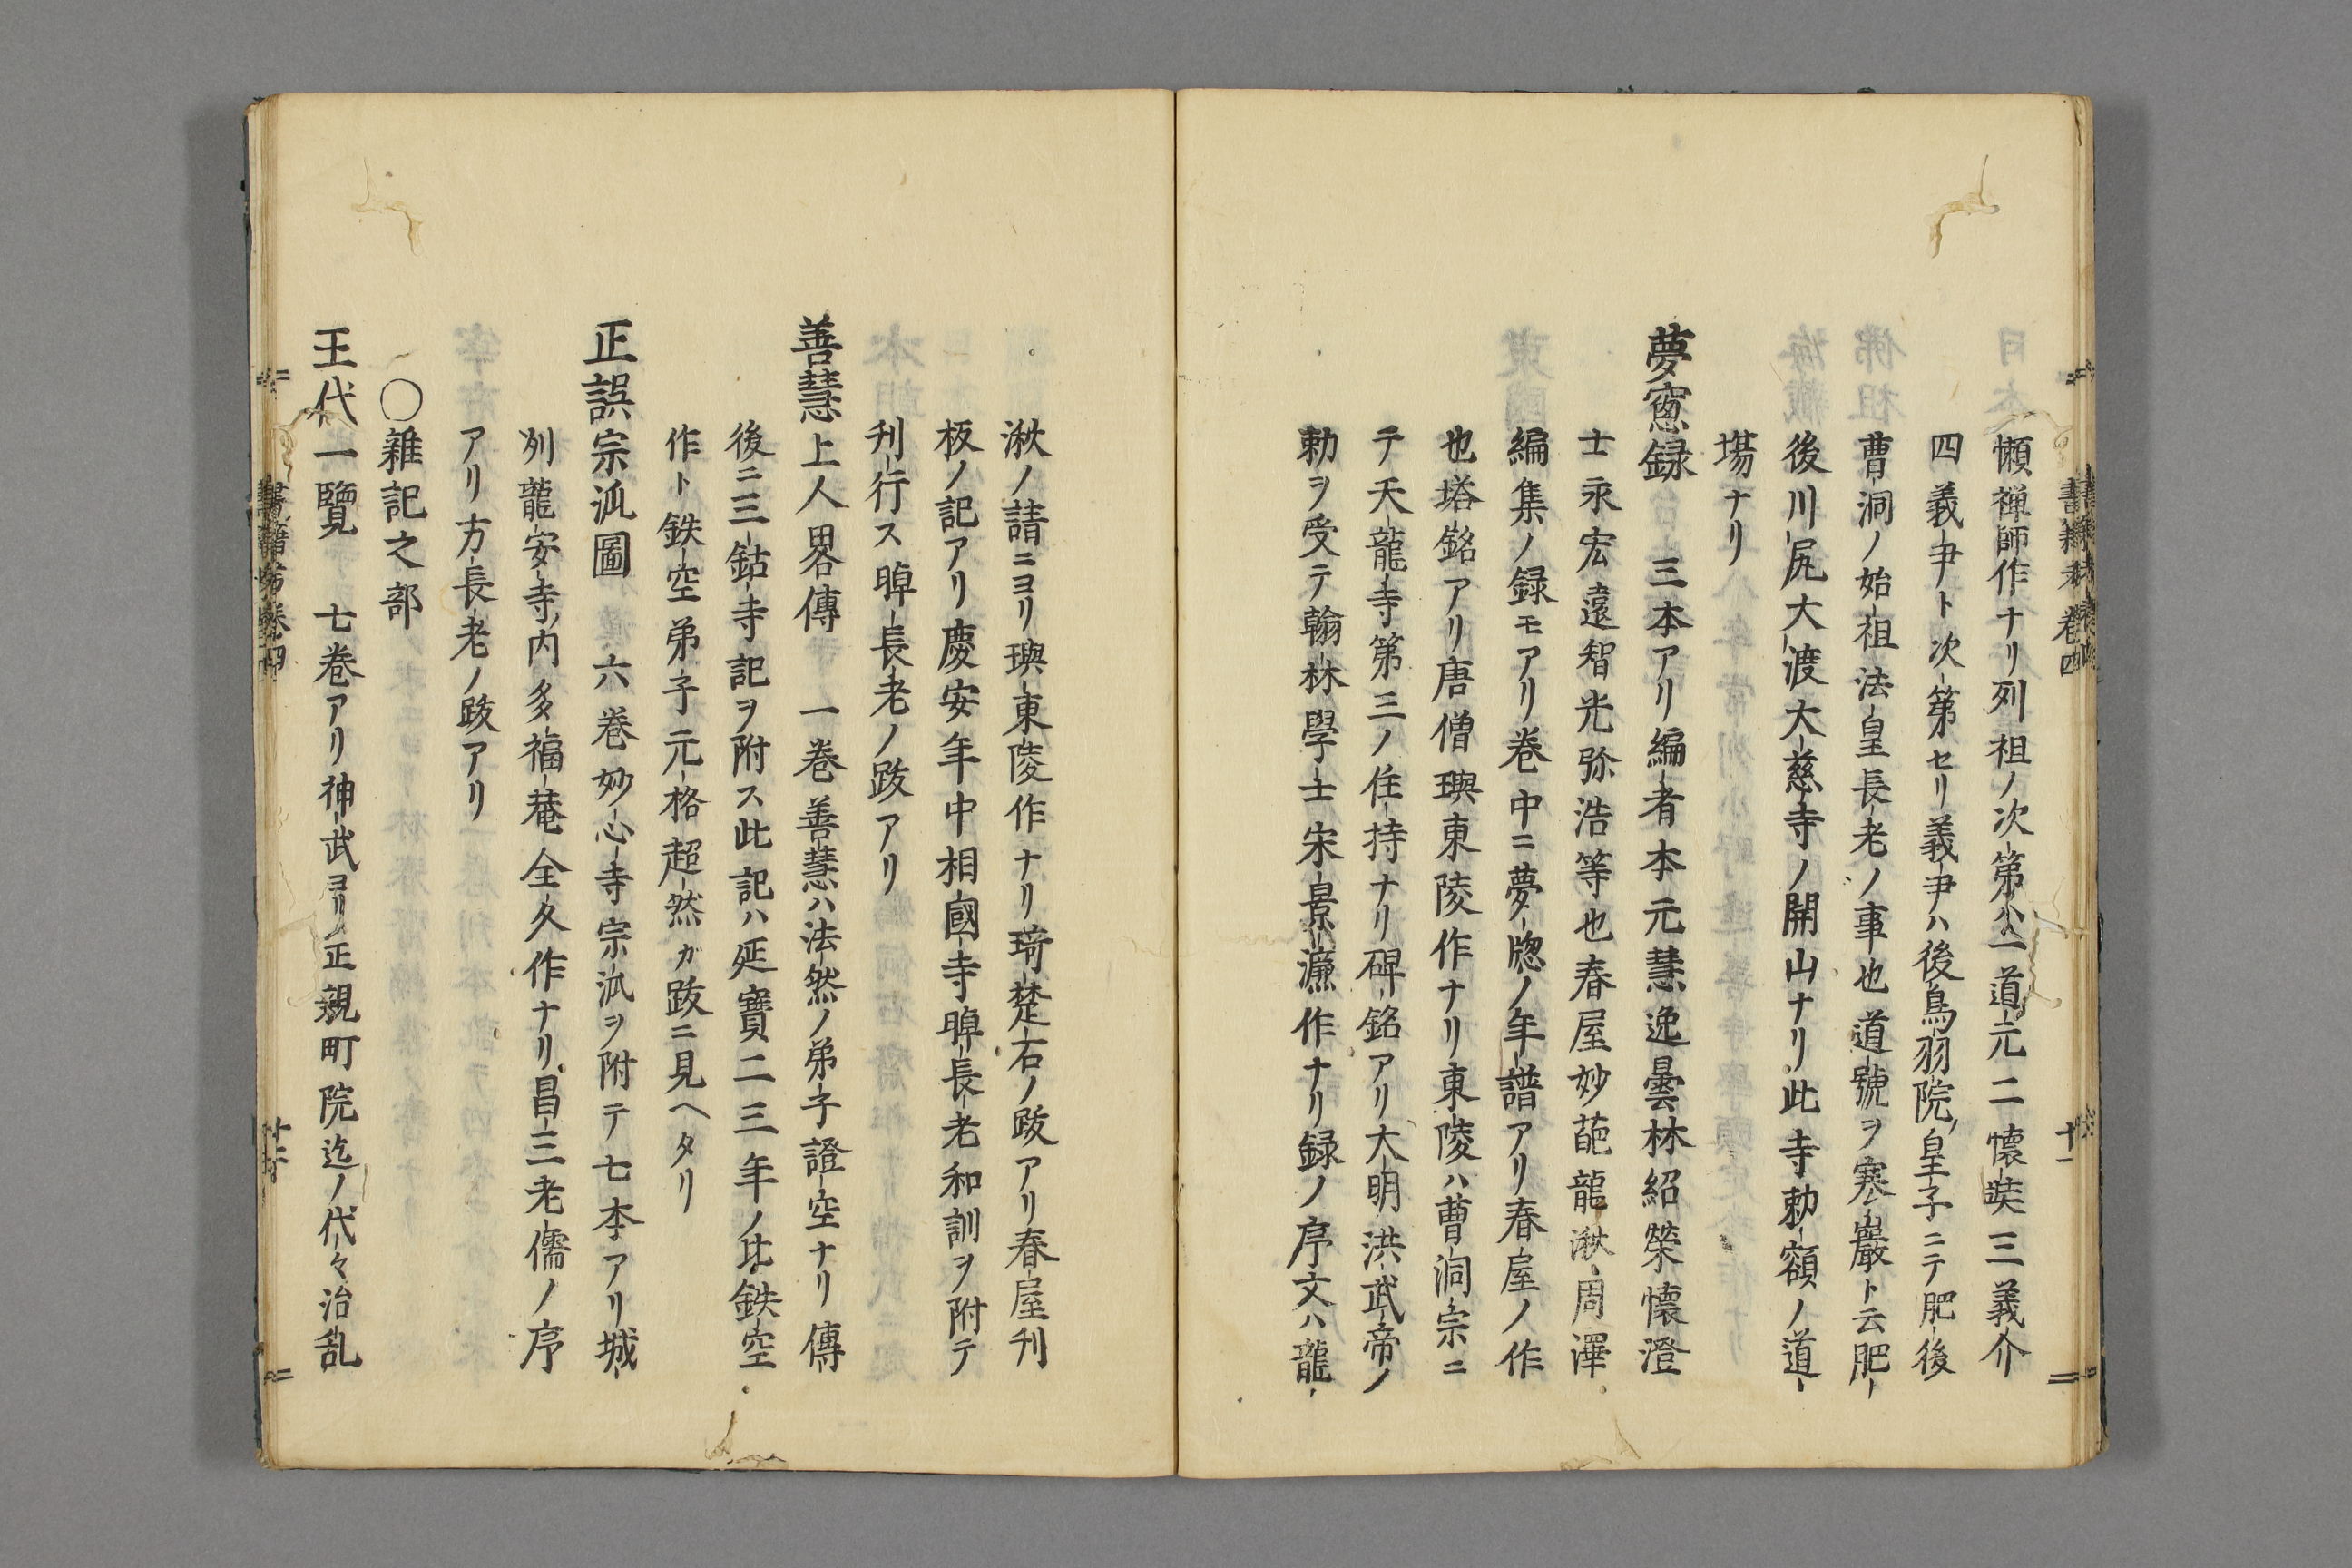 懶禅師作ナリ列祖ノ次第ハ一道元二懐奘三義介
四義尹ト次第セリ義尹ハ後鳥羽院皇子ニテ肥後
曹洞ノ始祖法皇長老ノ事也道號ヲ寒巖ト云肥
後川尻大渡大慈寺ノ開山ナリ此寺勅額ノ道
塲ナリ
夢窓録 三本アリ編者本元慧逸曇林紹榮懷澄
士永宏遠智光弥浩等也春屋妙葩龍湫周澤
編集ノ録モアリ巻中ニ夢牕ノ年譜アリ春屋ノ作
也塔銘アリ唐僧璵東陵作ナリ東陵ハ曹洞宗ニ
テ天龍寺第三ノ住持ナリ碑銘アリ大明洪武帝ノ
勅ヲ受テ翰林學士宋景濂作ナリ録ノ序文ハ龍
湫ノ請ニヨリ璵東陵作ナリ琦楚石ノ跋アリ春屋刊
板ノ記アリ慶安年中相國寺晫長老和訓ヲ附テ
刋行ス晫長老ノ跋アリ
善慧上人畧傳 一巻善慧ハ法然ノ弟子證空ナリ傳
後ニ三鈷寺記ヲ附ス此記ハ延寶二三年ノ比鉄空
作ト鉄空弟子元格超然ガ跋ニ見ヘタリ
正誤宗派圖 六巻妙心寺宗派ヲ附テ七本アリ城
列龍安寺内多福菴全久作ナリ昌三老儒ノ序
アリ方長老ノ跋アリ
○雜記之部
王代一覽 七巻アリ神武ヨリ正親町院迄ノ代々治乱